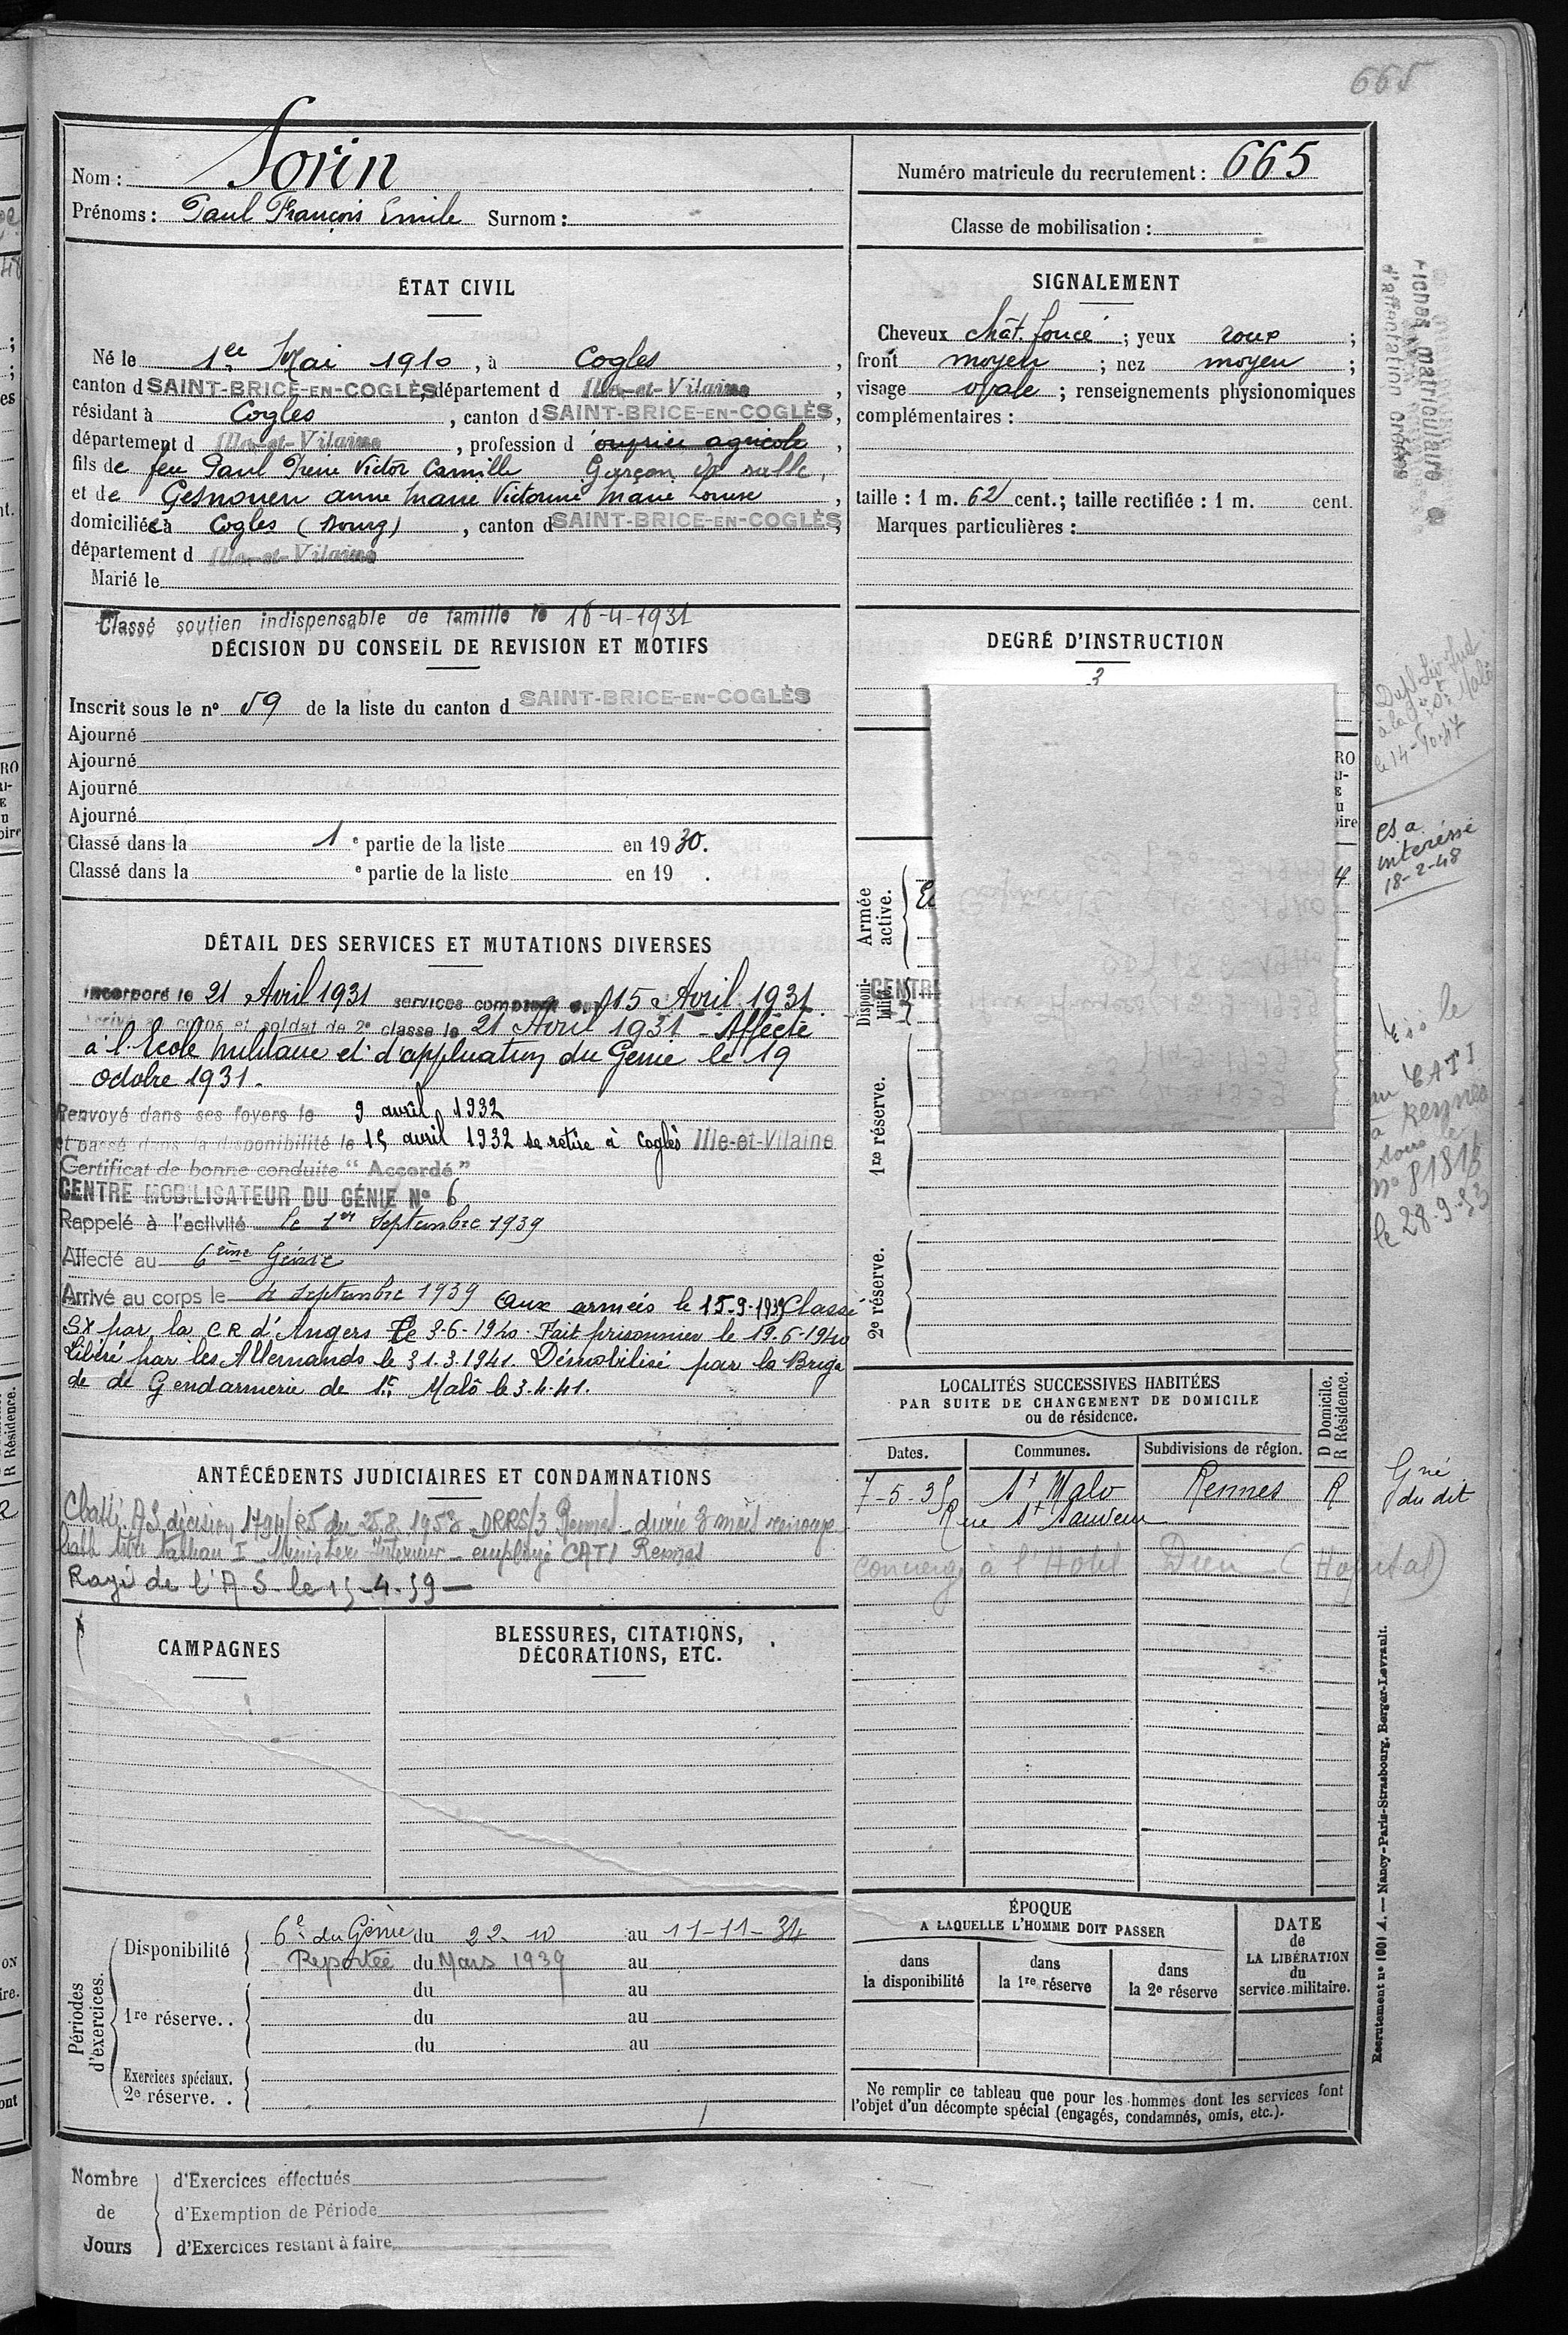 665
Nom : Sorin
Prénoms : Paul François Emile Surnom :
Numéro matricule du recrutement : 665
Classe de mobilisation :
ÉTAT CIVIL
Né le 1er Mai 1910, à Cogles,
canton d SAINT-BRICE-EN-COGLÈS, département d Ille-et-Vilaine,
résidant à Cogles, canton d SAINT-BRICE-EN-COGLÈS,
département d Ille-et-Vilaine, profession d agricole,
fils de feu Paul Victor Camille Garçon de salle,
et de anne Marie Victorine Marie Louise,
domiciliée à Cogles (Bourg), canton d SAINT-BRICE-EN-COGLÈS,
département d Ille-et-Vilaine
Marié le
SIGNALEMENT
Cheveux chât. foncé ; yeux roux ;
front moyen ; nez moyen ;
visage ovale ; renseignements physionomiques
complémentaires :
taille : 1 m. 62 cent. ; taille rectifiée : 1 m. cent.
Marques particulières :
Fiches matriculaire
d'affectation créées
Classé soutien indispensable de famille le 18-4-1931
DÉCISION DU CONSEIL DE REVISION ET MOTIFS
Inscrit sous le n° 59 de la liste du canton d SAINT-BRICE-EN-COGLÈS
Ajourné
Ajourné
Ajourné
Ajourné
Classé dans la 1e partie de la liste en 1930.
Classé dans la e partie de la liste en 19 .
DEGRÉ D'INSTRUCTION
3
Armée active.
Disponibilité.
CENTR
1re réserve.
2e réserve.
le 14-10-47
es a
intéressé
18-2-48
le
CATI
à Rennes
sous le
n° 81815
le 28-9-53
DÉTAIL DES SERVICES ET MUTATIONS DIVERSES
Incorporé le 21 Avril 1931 services 15 Avril 1931
Arrivé au corps et soldat de 2e classe le 21 Avril 1931 - Affecté
à l'Ecole Militaire et d'application du Genie le 19
Octobre 1931.
Renvoyé dans ses foyers le 9 avril 1932
et passé dans la disponibilité le 15 avril 1932 se retire à Coglès Ille-et-Vilaine
Certificat de bonne conduite "Accordé"
CENTRE MOBILISATEUR DU GÉNIE N° 6
Rappelé à l'activité le 1er Septembre 1939
Affecté au 6ème Génie
Arrivé au corps le 4 septembre 1939 Aux armées le 15-9-1939 Classé
SX par la C R d'Angers le 3-6-1940. Fait prisonnier le 19-6-1940
Libéré par les Allemands le 31.3.1941. Démobilisé par la Briga
de de Gendarmerie de St Malô le 3.4.41.
ANTÉCÉDENTS JUDICIAIRES ET CONDAMNATIONS
AS décision du 25.8.1958 DRRS/3 Rennes - durée 3 mois
tableau I - Ministère Intérieur - employé CATI Rennes
Rayé de l'A.S. le 15-4-59
LOCALITÉS SUCCESSIVES HABITÉES
PAR SUITE DE CHANGEMENT DE DOMICILE
ou de résidence.
D Domicile.
R Résidence.
Dates. Communes. Subdivisions de région.
7-5-35 St Malo Rennes R
Rue St Sauveur
Concierge à l'Hotel Dieu (Hopital)
Gné
du dit
CAMPAGNES
BLESSURES, CITATIONS,
DÉCORATIONS, ETC.
Périodes d'exercices.
Disponibilité 6e du Génie du 22-10 au 11-11-34
Reportée du Mars 1939 au
du au
1re réserve.. du au
du au
Exercices spéciaux.
2e réserve..
ÉPOQUE
A LAQUELLE L'HOMME DOIT PASSER
dans la disponibilité
dans la 1re réserve
dans la 2e réserve
DATE
de
LA LIBÉRATION
du
service militaire.
Ne remplir ce tableau que pour les hommes dont les services font
l'objet d'un décompte spécial (engagés, condamnés, omis, etc.).
Recrutement n° 1001 A. — Nancy-Paris-Strasbourg, Berger-Levrault.
Nombre de Jours
d'Exercices effectués
d'Exemption de Période
d'Exercices restant à faire